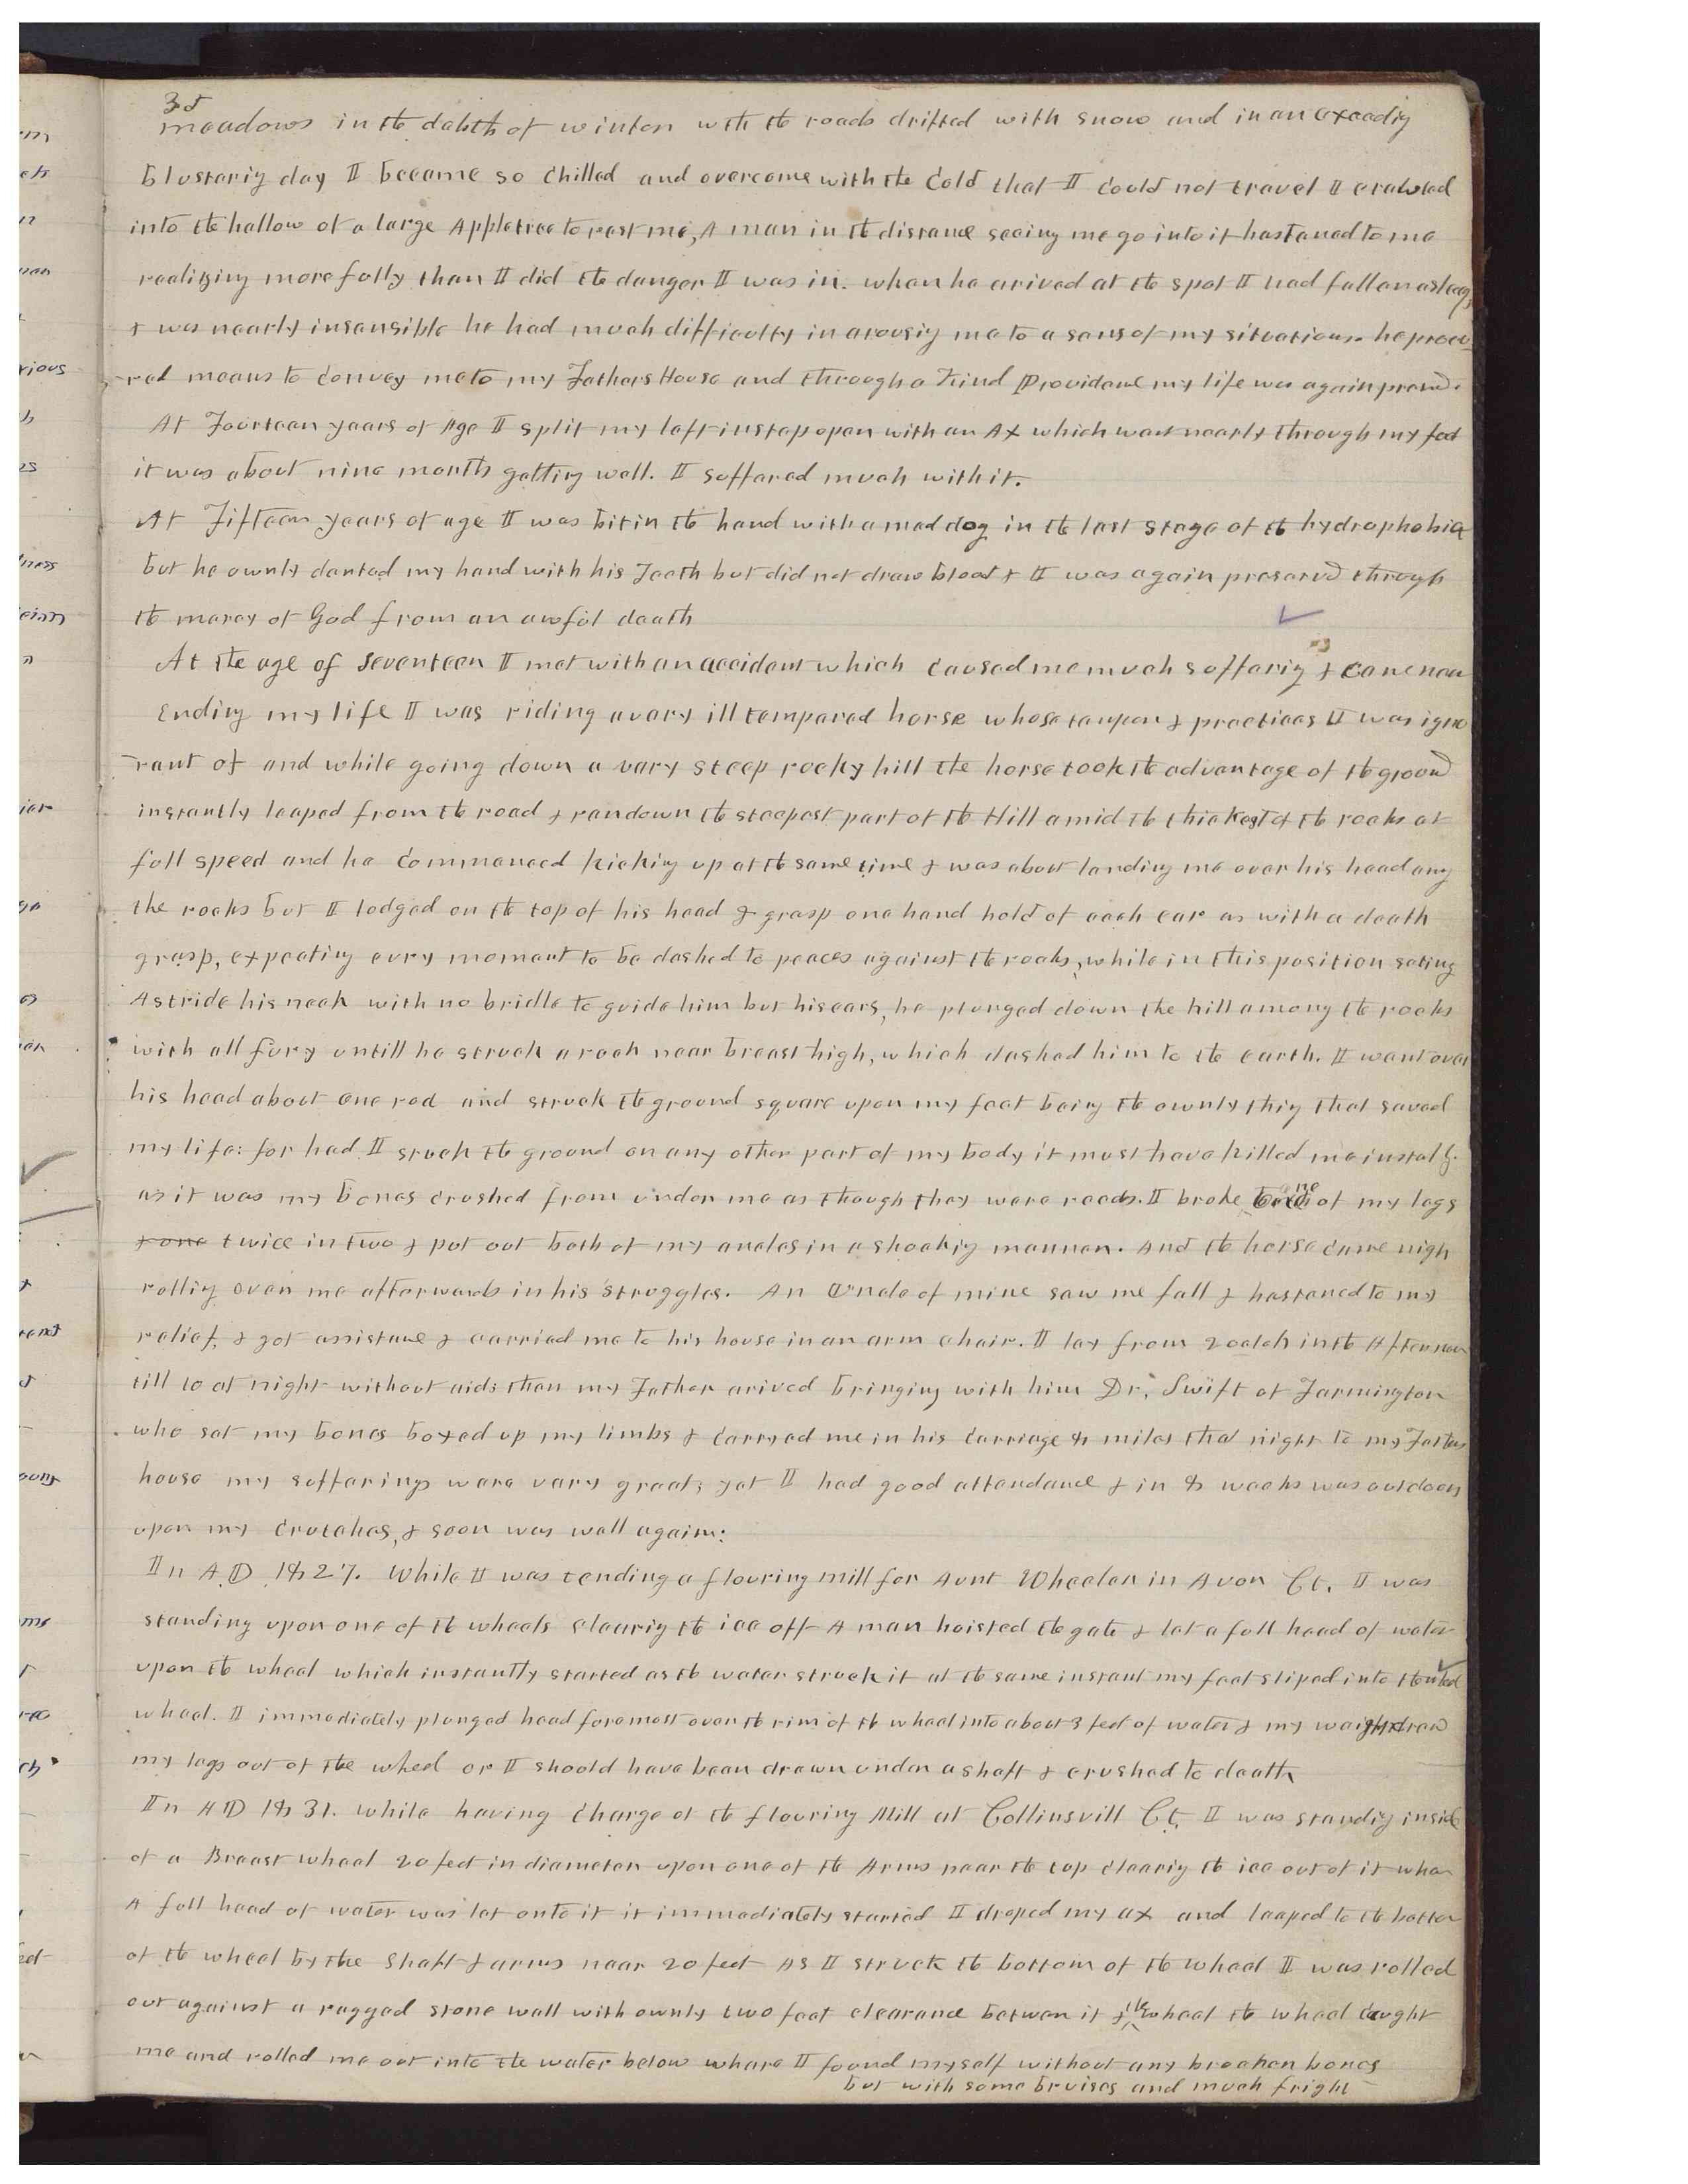 3d
meadows in the debth of winter with the roads drifted with snow and in an exceedig
blusterig day I became so chilled and overcome with the cold that I could not travel I crawled
into the hallow of a large Appletree to rest me, A man in the distance seeing me go into it hastened to me
realizing more fully than I did the danger I was in. when he arived at the spot I had fallen asleep
& was nearly insensible he had much difficulty in arousig me to a sens of my situation. he procu
-red means to convey me to my Fathers House and through a Kind Providence my life was again presvd.
At Fourteen years of Age I split my left instep open with an Ax which went nearly through my foot
it was about nine months getting well. I suffered much with it.
At Fifteen years of age I was bit in the hand with a mad dog in the last stage of the hydrophobia
but he ownly dented my hand with his Teeth but did not draw blood & I was again preservd through
the mercy of God from an awful death
At the age of Seventeen I met with an accident which caused me much sufferig & came near
Ending my life I was riding a very ill tempered horse whose temper & practices I was igno
-rant of and while going down a very steep rocky hill the horse took the advantage of the ground
instantly leaped from the road & ran down the steepest part of the Hill amid the thickest of the rocks at
full speed and he commenced kicking up at the same time & was about landing me over his head amg
the rocks but I lodged on the top of his head & grasp one hand hold of each ear as with a death
grasp, expecting evry moment to be dashed to peaces against the rocks, while in this position seting
Astride his neck with no bridle to guide him but his ears, he plunged down the hill among the rocks
with all fury untill he struck a rock near breast high, which dashed him to the earth. I went over
his head about one rod and struck the ground square upon my feet being the ownly thig that saved
my life: for had I struck the ground on any other part of my body it must have killed me instatly.
as it was my bones crushed from under me as though they were reeds. I broke one of my legs
& one twice in two & put out both of my ancles in a shockig manner. And the horse came nigh
rollig over me afterwards in his struggles. An Uncle of mine saw me fall & hastened to my
relief, & got assistance & carried me to his house in an arm chair. I lay from 2 oclck in the Afternoon
till 10 at night without aid: then my Father arived bringing with him Dr. Swift of Farmington
who set my bones boxed up my limbs & carryed me in his carriage 8 miles that night to my Fathers
house my sufferings were very great; yet I had good attendance & in 8 weeks was outdoors
upon my crutches, & soon was well again:
In A.D. 1827. While I was tending a flouring mill for Aunt Wheeler in Avon Ct. I was
standing upon one of the wheels clearig the ice off A man hoisted the gate & let a full head of water
upon the wheel which instantly started as the water struck it at the same instant my feet sliped into the
wheel. I immediately plunged head foremost over the rim of the wheel into about 3 feet of water & my waight drew
my legs out of the wheel or I should have been drawn under a shaft & crushed to death
In AD 1831. while having charge of the flouring Mill at Collinsvill Ct. I was standig inside
of a Breast wheel 20 feet in diameter upon one of the Arms near the top clearig the ice out of it when
A full head of water was let onto it it immediately started I droped my ax and leaped to the bottom
of the wheel by the shaft & arms near 20 feet As I struck the bottom of the wheel I was rolled
out against a ragged stone wall with ownly two feet clearance betwen it & the wheel the wheel caught
me and rolled me out into the water below where I found myself without any broaken bones
but with some bruises and much fright